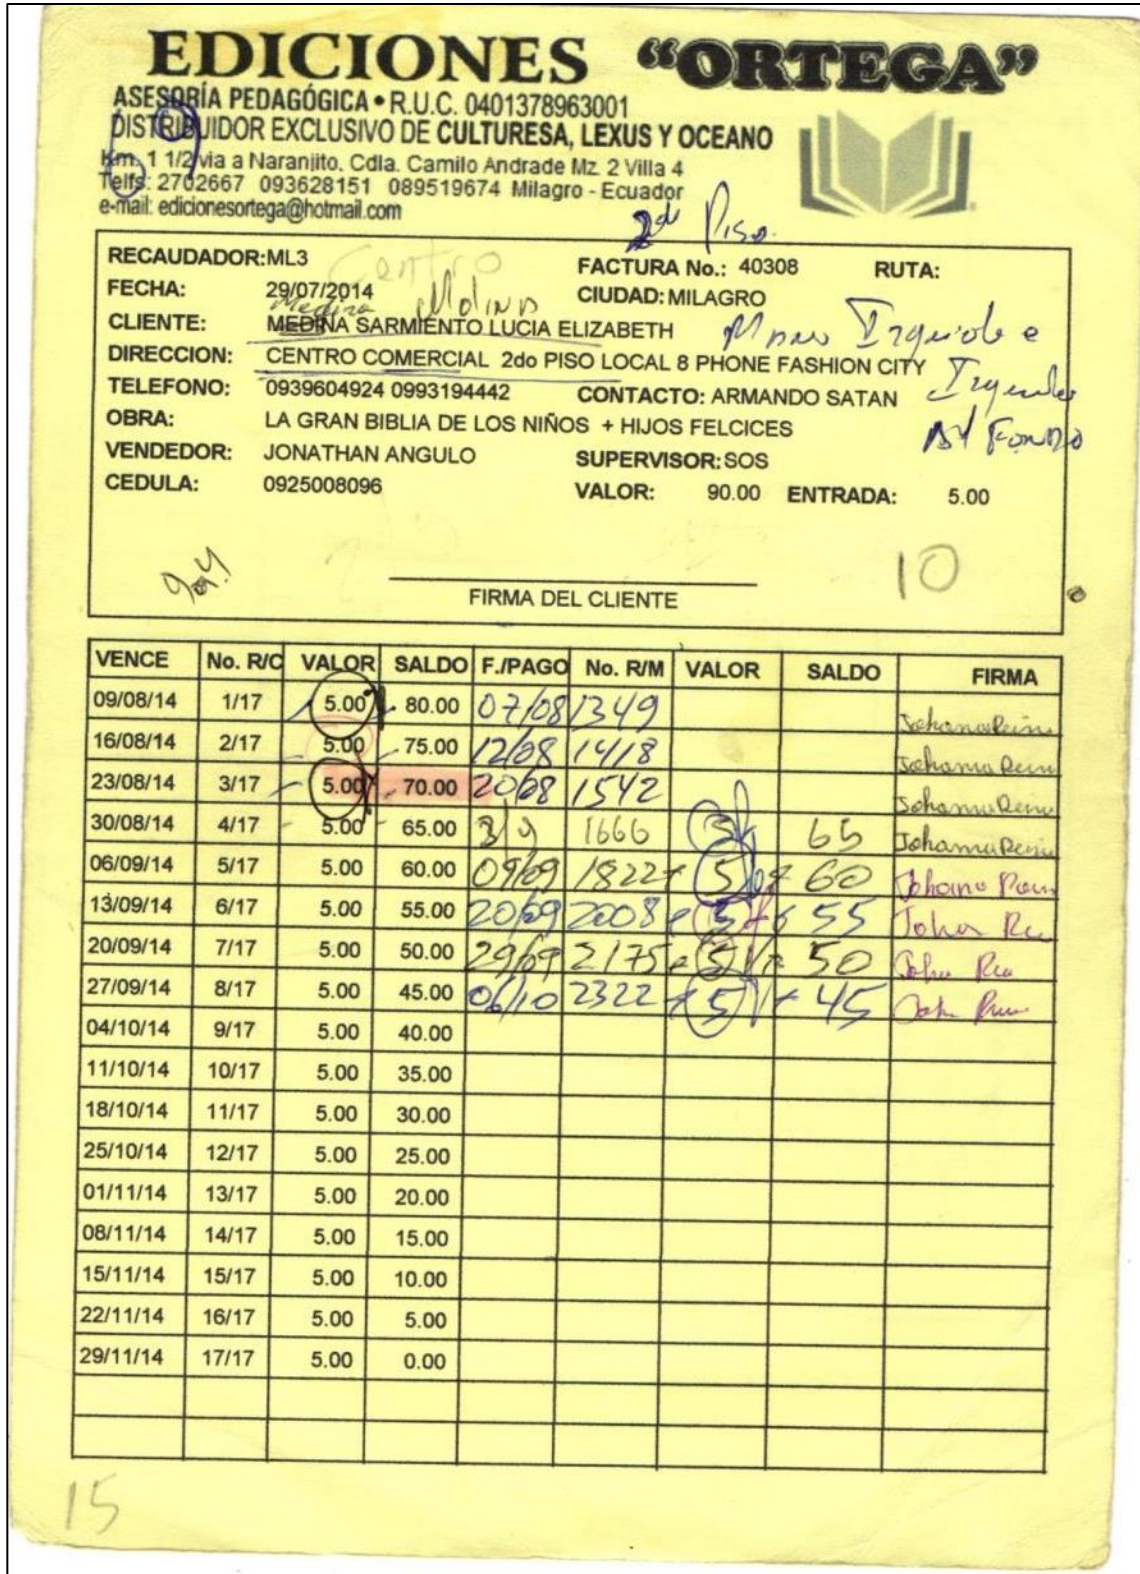 EDICIONES “ORTEGA”
ASESORÍA PEDAGÓGICA • R.U.C. 0401378963001
DISTRIBUIDOR EXCLUSIVO DE CULTURESA, LEXUS Y OCEANO
Km. 1 1/2 via a Naranjito, Cdla. Camilo Andrade Mz. 2 Villa 4
Telfs: 2702667 093628151 089519674 Milagro - Ecuador
e-mail: edicionesortega@hotmail.com
2do Piso
RECAUDADOR: ML3 Centro FACTURA No.: 40308 RUTA:
FECHA: 29/07/2014 CIUDAD: MILAGRO
Medina Molina
CLIENTE: MEDINA SARMIENTO LUCIA ELIZABETH Mano Izquierda
DIRECCION: CENTRO COMERCIAL 2do PISO LOCAL 8 PHONE FASHION CITY
TELEFONO: 0939604924 0993194442 CONTACTO: ARMANDO SATAN
OBRA: LA GRAN BIBLIA DE LOS NIÑOS + HIJOS FELCICES Al Fondo
VENDEDOR: JONATHAN ANGULO SUPERVISOR: SOS
CEDULA: 0925008096 VALOR: 90.00 ENTRADA: 5.00
10
FIRMA DEL CLIENTE
VENCE No. R/C VALOR SALDO F./PAGO No. R/M VALOR SALDO FIRMA
09/08/14 1/17 5.00 80.00 07/08 1349
16/08/14 2/17 5.00 75.00 12/08 1418
23/08/14 3/17 5.00 70.00 20/08 1542
30/08/14 4/17 5.00 65.00 3/9 1666 5 65
06/09/14 5/17 5.00 60.00 09/09 1822 5 60
13/09/14 6/17 5.00 55.00 20/09 2008 5 55
20/09/14 7/17 5.00 50.00 29/09 2175 5 50
27/09/14 8/17 5.00 45.00 06/10 2322 5 45
04/10/14 9/17 5.00 40.00
11/10/14 10/17 5.00 35.00
18/10/14 11/17 5.00 30.00
25/10/14 12/17 5.00 25.00
01/11/14 13/17 5.00 20.00
08/11/14 14/17 5.00 15.00
15/11/14 15/17 5.00 10.00
22/11/14 16/17 5.00 5.00
29/11/14 17/17 5.00 0.00
15